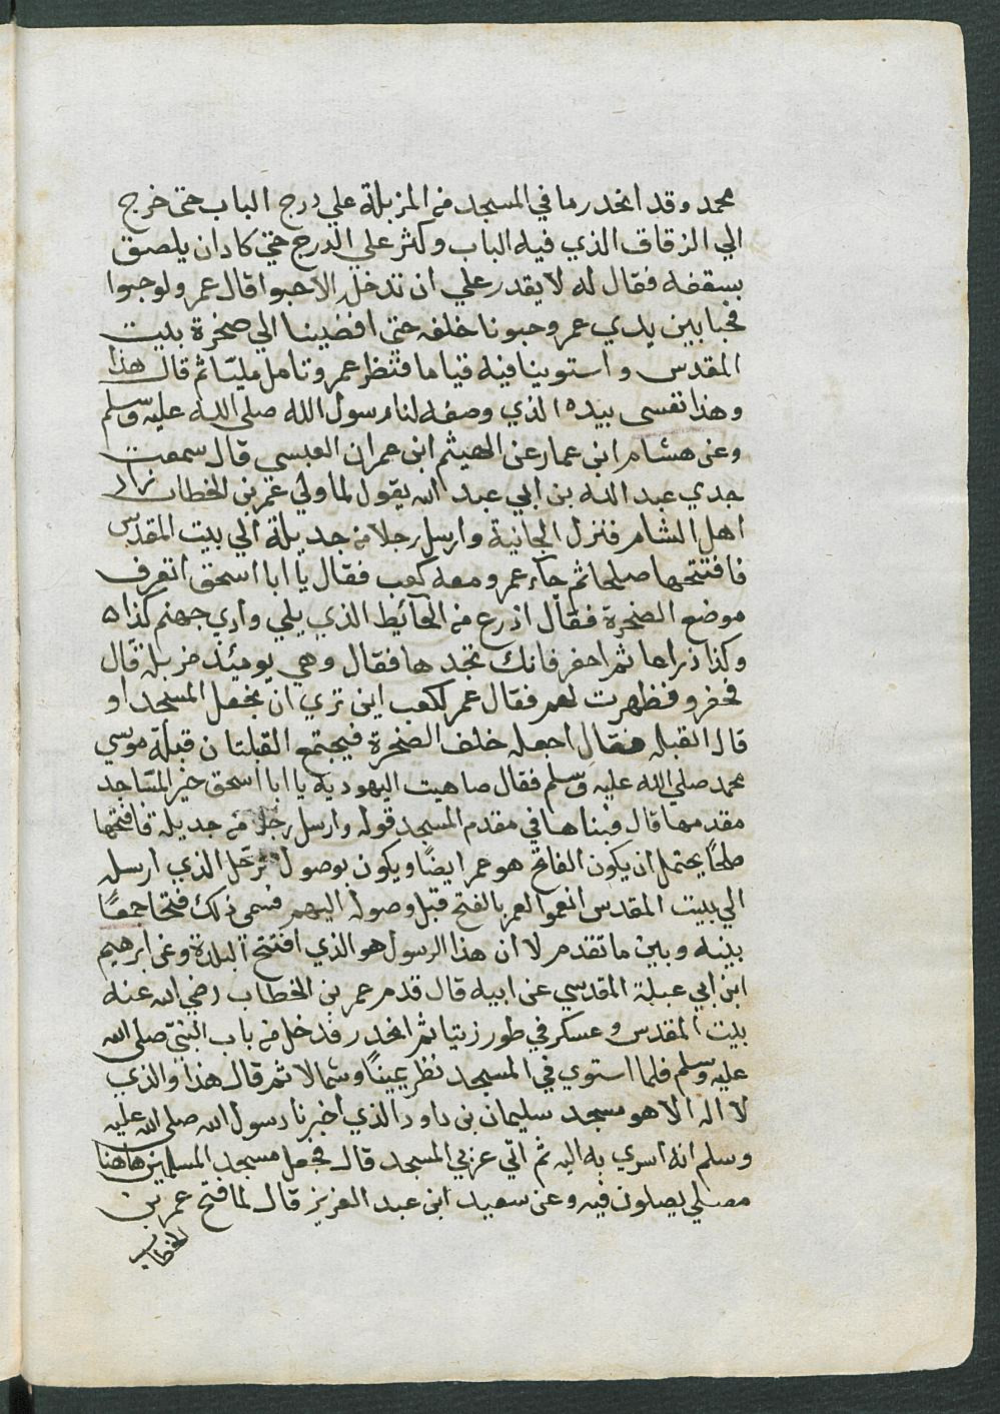 محمد وقد انحدر ما في المسجد من المزبلة علي درج الباب حتى خرج
الي الزقاق الذي فيه الباب وكثر علي الدرج حتى كاد ان يلصق
بسقفه فقال له لا يقدر علي ان تدخل الا حبوا قال عمر ولو حبوا
فحبا بين يدي عمر وحبونا خلفه حتى افضينا الي صخرة بيت
المقدس واستوينا فيه قياما فنظر عمر وتامل مليّا ثم قال هذا
وهذا نفسى بيده الذي وصفه لنا رسول الله صلى الله عليه وسلم
وعن هشام ابن عمار عن الهيثم ابن عمران العبسي قال سمعت
جدي عبد الله بن ابي عبد الله يقول لما ولي عمر بن الخطاب زار
اهل الشام فنزل الجابية وارسل رجلا من جديلة الي بيت المقدس
فافتتحها صلحا ثم جاء عمر ومعه كعب فقال يا ابا اسحق اتعرف
موضع الصخرة فقال اذرع من الحائيط الذي يلي وادي جهنم كذا ٥
وكذا ذراعا ثم احفر فانك تجدها فقال وهي يومئذ مزبلة قال
فحفرو فظهرت لهم فقال عمر لكعب اين تري ان نجعل المسجد او
قال القبله فقال اجعله خلف الصخرة فيجتمع القبلتان قبلة موسي
محمد صلي الله عليه وسلم فقال ضاهيت اليهودية يا ابا اسحق خير المساجد
مقدمها قال وبناها في مقدم المسجد قوله وارسل رجلا من جديلة فافتتحها
صلحًا يحتمل ان يكون الفاتح هو عمر ايضًا ويكون بوصول الرجل الذي ارسل
الي بيت المقدس انعموا لعمر بالفتح قبل وصوله اليهم فسمى ذلك فتحا جمعًا
بينه وبين ما تقدم لا ان هذا الرسول هو الذي افتتح البلدة وعن ابرهيم
ابن ابي عبلة المقدسي عن ابيه قال قدم عمر بن الخطاب رضي الله عنه
بيت المقدس وعسكر في طور زيتا ثم انحدر فدخل من باب النبيّ صلى الله
عليه وسلم فلما استوي في المسجد نظر يمينًا وشمالا ثم قال هذا والذي
لا اله الا هو مسجد سليمان بن داود الذي اخبرنا رسول الله صلى الله عليه
وسلم انه اسري به اليه ثم اتي غربي المسجد قال فجعل مسجد المسلمين هاهنا
مصلي يصلون فيه وعن سعيد ابن عبد العزيز قال لما فتح عمر بن
الخطاب